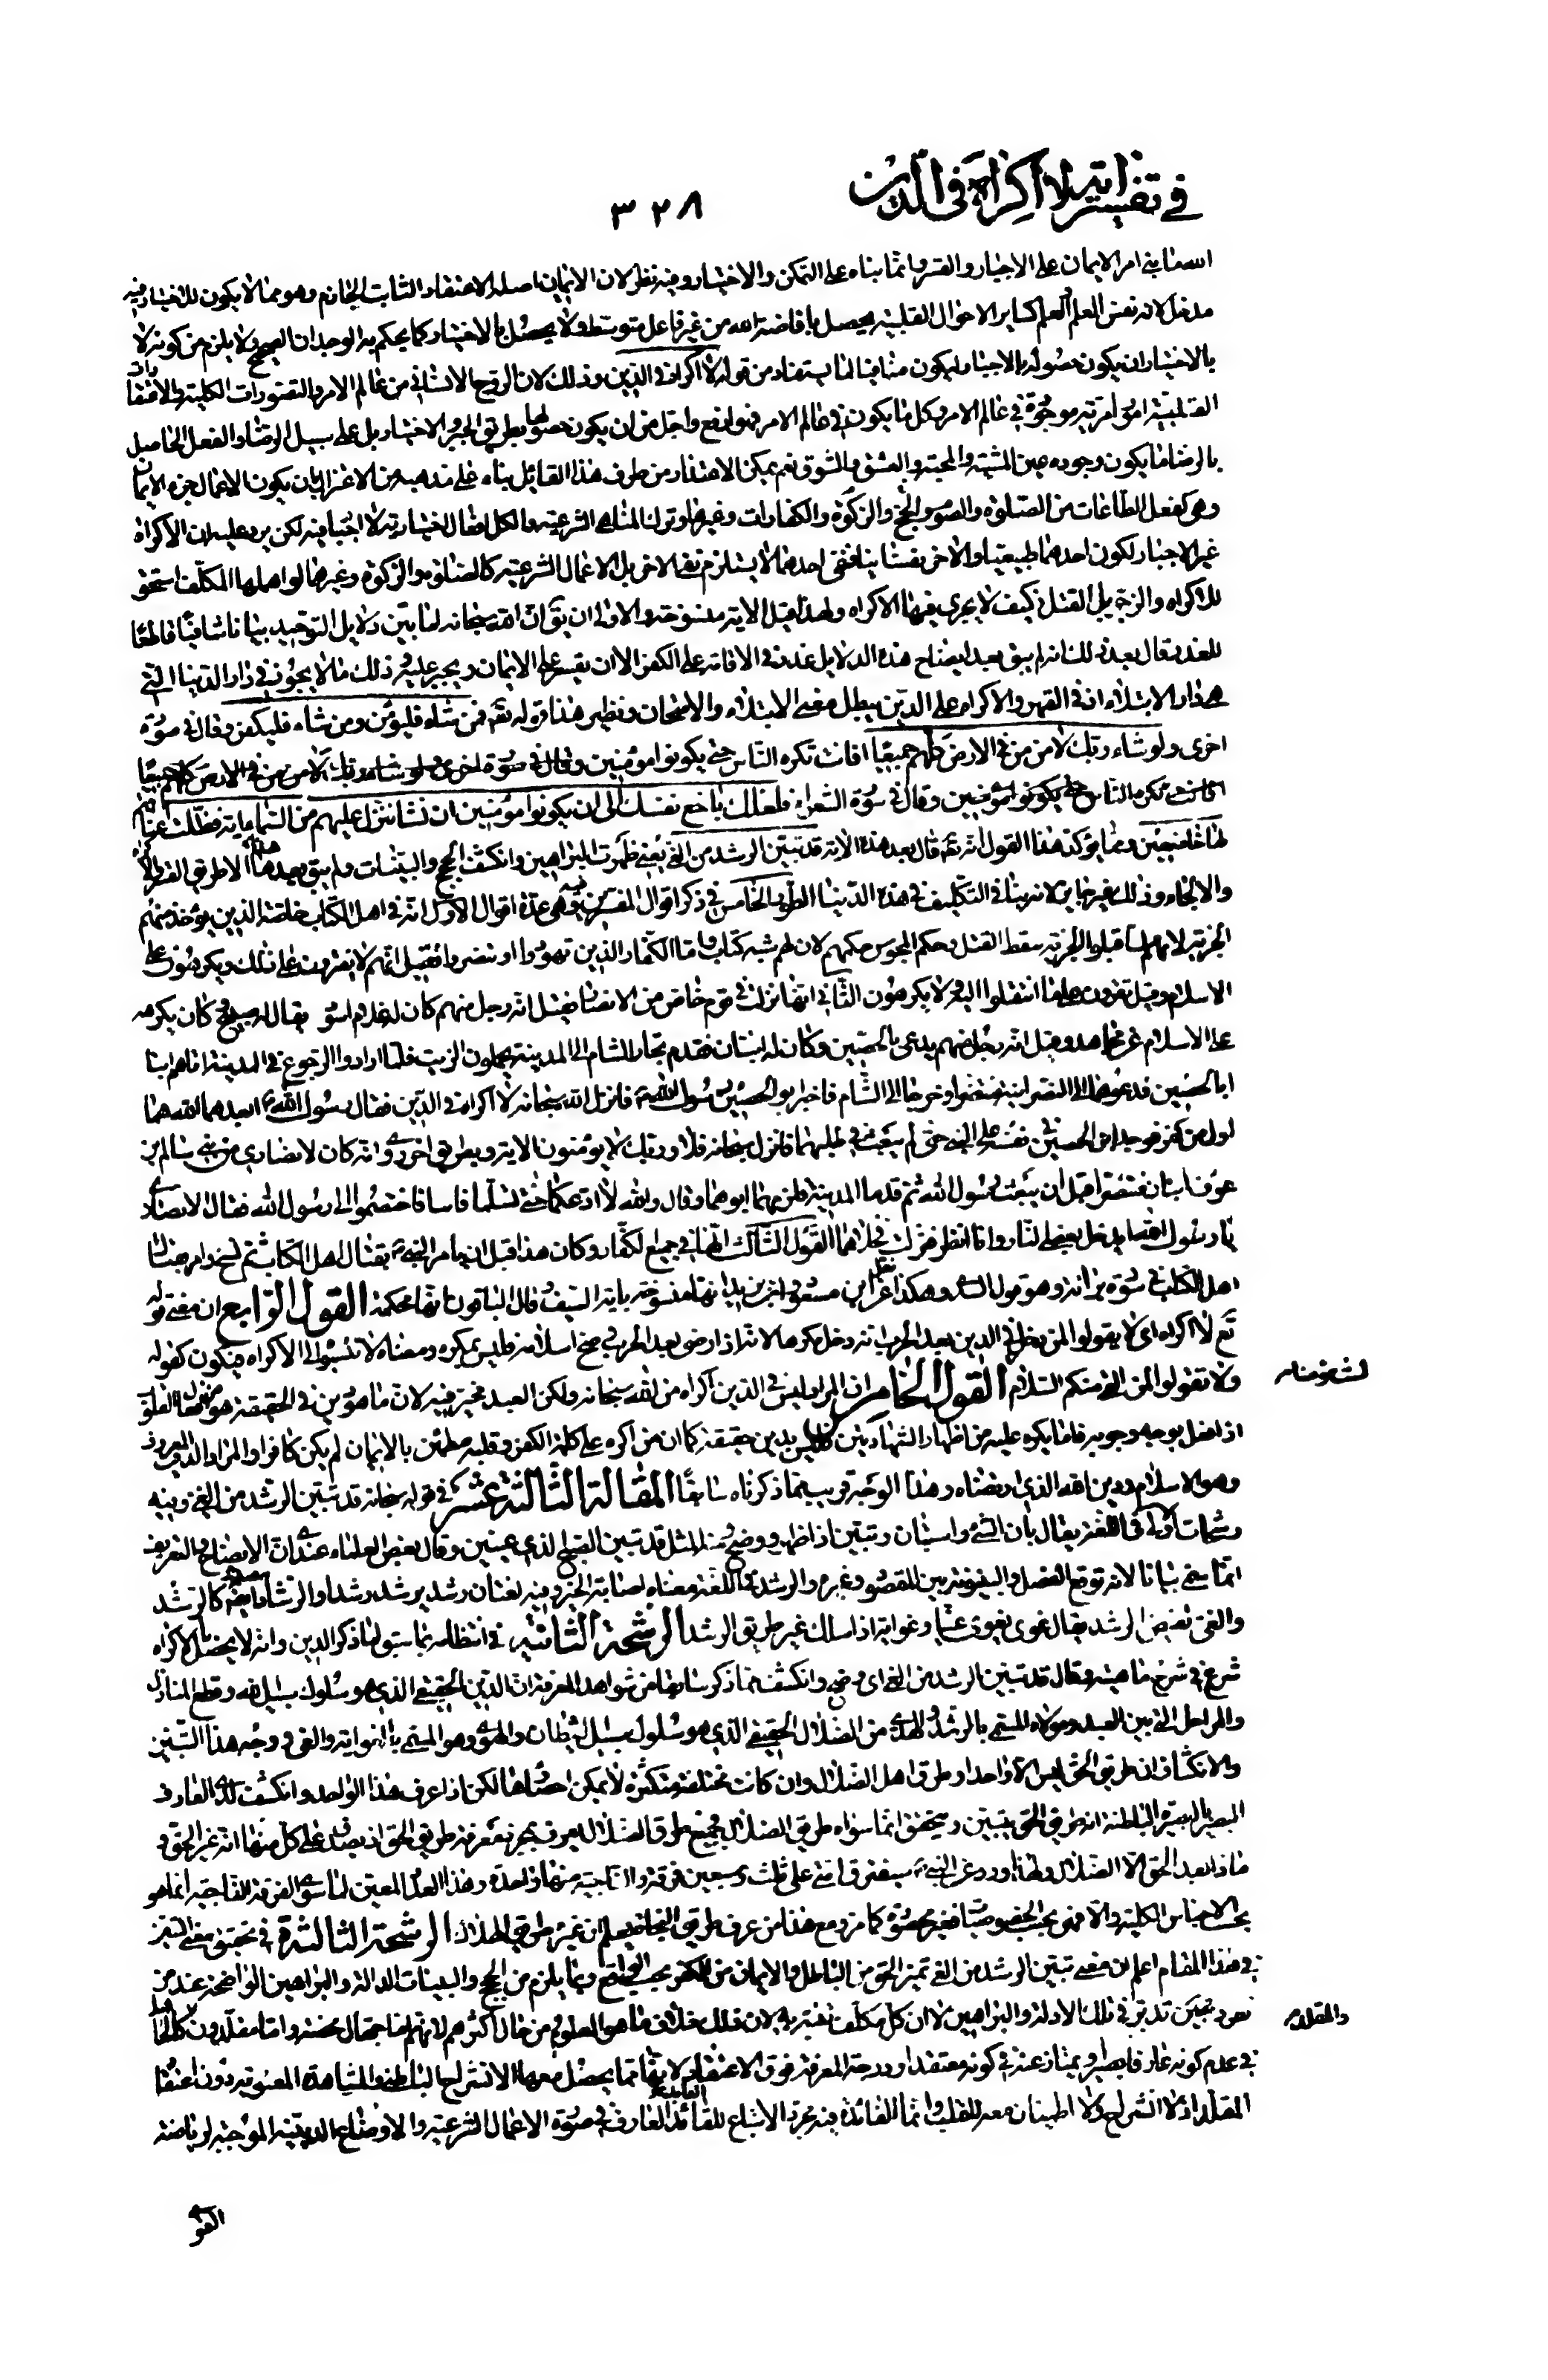 في تفسير اية لا اكراه في الدين
٣٢٨
الله ما بنى امر الايمان على الاجبار والقسر وانما بناه على التمكن والاختيار وفيه نظر لان الايمان اصله الاعتقاد الثابت الجازم وهو مما لا يكون للاختيار فيه
مدخل لانه نفس العلم والعلم كساير الاحوال القلبية يحصل بافاضة الله من غير فاعل متوسط ولا يحصل بالاختيار كما يحكم به الوجدان الصحيح ولا يلزم من كونه لا
بالاختيار ان يكون حصوله بالاجبار ليكون منافيا لما يستفاد من قوله لا اكراه في الدين وذلك لان الروح الانساني من عالم الامر والتصورات الكلية والاعتقادات
القلبية امور امرية موجودة في عالم الامر وكل ما يكون في عالم الامر فهو ارفع واجل من ان يكون حصولها بطريق الجبر والاختيار بل على سبيل الرضا والفعل الحاصل
بالرضا ما يكون وجوده عين المشية والمحبة والعشق والشوق نعم يمكن الاعتذار من طرف هذا القايل بناء على مذهبه من الاعتزال بان يكون الاعمال جزء الايمان
وهي كفعل الطاعات من الصلوة والصوم والحج والزكوة والكفارات وغيرها وترك المناهي الشرعية والكل افعال اختيارية لا اجبار فيه لكن يرد عليه ان الاكراه
غير الاجبار لكون احدهما طبيعيا والاخر نفسانيا فنفى احدهما لا يستلزم نفى الاخر بل الاعمال الشرعية كالصلوة والزكوة وغيرهما لو اهملها المكلف استحق
للاكراه والزجر بل القتل فكيف لا يجري فيها الاكراه ولهذا قيل الاية منسوخة والاولى ان يق ان الله سبحانه لما بين دلايل التوحيد بيانا شافيا قاطعا
للعذر قال بعد ذلك انه لم يبق بعد ايضاح هذه الدلايل عذر في الاقامة على الكفر الا ان يقسر على الايمان ويجبر عليه وذلك ما لا يجوز في دار الدنيا التي
هي دار الابتلاء اذ في القهر والاكراه على الدين يبطل معنى الابتلاء والامتحان ونظير هذا قوله تعم فمن شاء فليؤمن ومن شاء فليكفر وقال في سورة
اخرى ولو شاء ربك لامن من في الارض كلهم جميعا افانت تكره الناس حتى يكونوا مؤمنين وقال في سورة اخرى ولو شاء ربك لامن من في الارض كلهم جميعا
افانت تكره الناس حتى يكونوا مؤمنين وقال في سورة الشعراء فلعلك باخع نفسك الا يكونوا مؤمنين ان نشا ننزل عليهم من السماء اية فظلت اعناقهم
لها خاضعين ومما يؤكد هذا القول انه تعم قال بعد هذه الاية قد تبين الرشد من الغي يعني ظهرت البراهين وانكشف الحجج والبينات ولم يبق بعدها الا طريق القسر
والالجاء وذلك غير جايز لانه ينافي التكليف في هذه الدنيا الطريق الخامس في ذكر اقوال المفسرين فيه وهي عدة اقوال الاول انه في اهل الكتاب خاصة الذين يؤخذ منهم
الجزية لانهم لما قبلوا الجزية سقط القتل وحكم المجوس حكمهم لان لهم شبه كتاب واما الكفار الذين تهودوا او تنصروا فقيل انهم لا يقرون على ذلك ويكرهون على
الاسلام وقيل يقرون على ما انتقلوا اليه ولا يكرهون الثاني انها نزلت في قوم خاص من الانصار فقيل انه رجل منهم كان له غلام اسود يقال له صبيح وكان يكرهه
على الاسلام عن مجاهد وقيل انه رجل منهم يدعى بالحصين وكان له ابنان فقدم تجار الشام الى المدينة يحملون الزيت فلما ارادوا الرجوع من المدينة اتاهم ابنا
ابا الحصين فدعوهما الى النصرانية فتنصرا وخرجا الى الشام فاخبر ابو الحصين رسول الله ص فانزل الله سبحانه لا اكراه في الدين فقال رسول الله ص ابعدهما الله هما
اول من كفر فوجد ابو الحصين في نفسه على النبي حين لم يبعث في طلبهما فانزل سبحانه فلا وربك لا يؤمنون الاية وبطريق اخرى روي انه كان لانصاري من بني سالم بن
عوف ابنان فتنصرا قبل ان يبعث رسول الله ثم قدما المدينة فلزمهما ابوهما وقال والله لا ادعكما حتى تسلما فابيا فاختصموا الى رسول الله فقال الانصاري
يا رسول الله ايدخل بعضي النار وانا انظر فنزلت فخلاهما القول الثالث انها في جميع الكفار وكان هذا قبل ان يامر النبي ص بقتال اهل الكتاب ثم نسخ وامر بقتال
اهل الكتاب في سورة براءة وهو قول السدي وهكذا نقل عن ابن مسعود وابن زيد انها منسوخة باية السيف وقال الباقون انها محكمة القول الرابع ان معنى قوله
تع لا اكراه اي لا يقولوا لمن دخل في الدين بعد الحرب انه دخل مكرها لانه اذا رضي بعد الحرب وصح اسلامه فليس بمكره ومعناه لا تنسبوا الى الاكراه فيكون كقوله
ولا تقولوا لمن القى اليكم السلام لست مؤمنا القول الخامس ان المراد ليس في الدين اكراه من الله سبحانه ولكن العبد مخير فيه لان ما هو دين في الحقيقة هو من افعال القلوب
اذا فعل لوجه وجوبه فاما ما يكره عليه من اظهار الشهادتين فليس بدين حقيقة كما ان من اكره على كلمة الكفر وقلبه مطمئن بالايمان لم يكن كافرا والمراد الدين المعروف
وهو الاسلام ودين الله الذي ارتضاه وهذا الوجه قريب مما ذكرناه سابقا المقالة الثالثة عشر في قوله سبحانه قد تبين الرشد من الغي وفيه
رشحات اولى في اللغة يقال بان الشيء واستبان وتبين اذا ظهر ووضح ومنه المثل قد تبين الصبح لذي عينين وقال بعض العلماء عندي ان الايضاح والتعريف
انما سمي بيانا لانه توقع الفصل والبينونة بين المقصود وغيره والرشد في اللغة معناه اصابة الخير وفيه لغتان رشد يرشد رشدا والرشاد ايضا مصدر كالرشد
والغي نقيض الرشد يقال غوى يغوى غيا وغواية اذا سلك غير طريق الرشد الرشحة الثانية في انتظامه بما سبق لما ذكر الدين وانه لا يحصل بالاكراه
شرع في شرح ماهيته وقال قد تبين الرشد من الغي اي وضح وانكشف مما ذكر سابقا من شواهد المعرفة ان الدين الحقيقي الذي هو سلوك سبيل الله وقطع المنازل
والمراحل التي بين العبد ومولاه المسمى بالرشد والهدى من الضلال الحقيقي الذي هو سلوك سبيل الشيطان والهوى وهو المسمى بالغواية والغي ووجه هذا التبين
والانكشاف ان طريق الحق ليس الا واحدا وطرق اهل الضلال وان كانت مختلفة متكثرة لا يمكن احصاؤها لكن اذا عرف هذا الواحد وانكشف لدى العارف
البصير بالبصيرة الباطنة انه طريق الحق يتبين ويتحقق ان ما سواه طريق الضلال فجميع طرق الضلال يعرف بمجرد معرفة طريق الحق اذ يصدق على كل منها انه غير الحق و
ماذا بعد الحق الا الضلال ولهذا ورد عن النبي ص ستفترق امتي على ثلث وسبعين فرقة والناجية منها واحدة وهذا العدد المعين لما سوى الفرقة الناجية انما هو
بحسب الاجناس الكلية والا فهي بحسب الخصوصيات غير محصورة كما مر ومع هذا من عرف طريق النجاة يعلم ان غيره طريق الهلاك الرشحة الثالثة في تحقيق معنى التبين
في هذا المقام اعلم ان معنى تبين الرشد من الغي تميز الحق من الباطل والايمان من الكفر بحسب الواقع وبما يلزم من الحجج والبينات الدالة والبراهين الواضحة عند من
تدبر في تلك الادلة والبراهين لا ان كل مكلف تنبه لان ذلك خلاف ما هو المعلوم من حال اكثرهم لانهم اما جهال محضة واما مقلدون كالجهال
والمقلد
في عدم كونه عارفا بصيرا ويمتاز عنه في كونه معتقدا ودرجة المعرفة فوق الاعتقاد لانها مما يحصل معها الانشراح الباطني والمشاهدة المعنوية دون اعتقاد
المقلد اذ لا انشراح ولا اطمينان معه للقلب وانما الفائدة فيه مجرد الاتباع للقائد العارف في صورة الاعمال الشرعية والاوضاع الدينية الموجبة لرياضة
القو